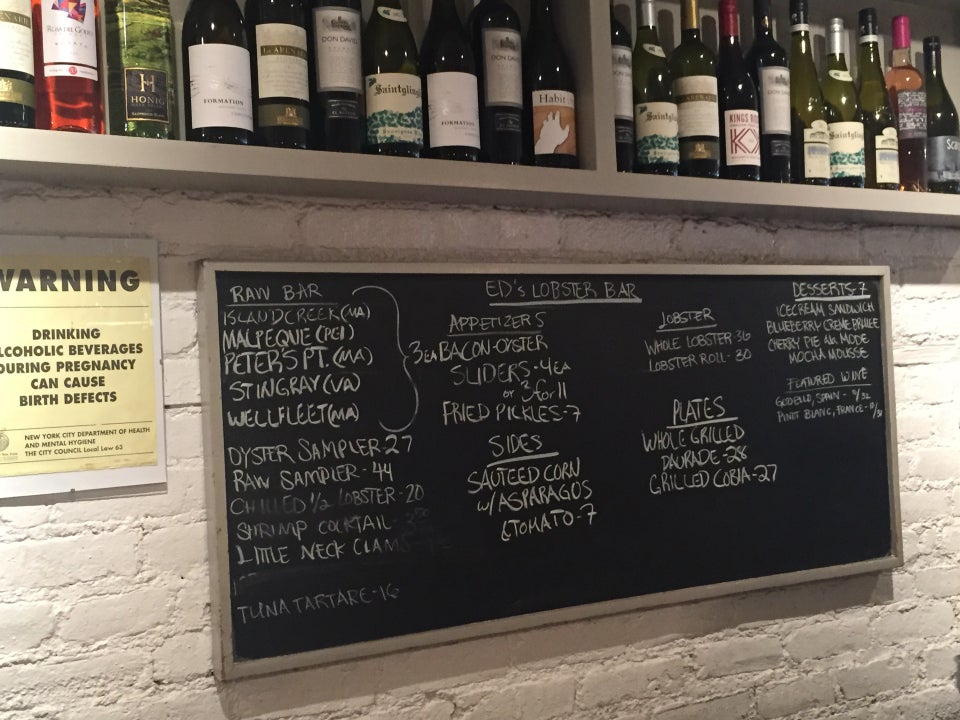 ROSA DEL GOLFO
ROSATO
H
HONIG
FORMATION
DON DAVID
Saintglin
FORMATION
DON DAVID
Habit
DON
KINGS
WARNING
DRINKING
ALCOHOLIC BEVERAGES
DURING PREGNANCY
CAN CAUSE
BIRTH DEFECTS
NEW YORK CITY DEPARTMENT OF HEALTH
AND MENTAL HYGIENE
THE CITY COUNCIL Local Law 63
ED'S LOBSTER BAR
RAW BAR
ISLAND CREEK (MA)
MALPEQUE (PEI)
PETER'S PT. (MA)
STINGRAY (VA)
WELLFLEET (MA)
3 EA
OYSTER SAMPLER-27
RAW SAMPLER-44
CHILLED 1/2 LOBSTER-20
SHRIMP COCKTAIL-3⁵⁰
LITTLE NECK CLAMS
TUNA TARTARE-16
APPETIZERS
BACON-OYSTER
SLIDERS-4EA
or 3 for 11
FRIED PICKLES-7
SIDES
SAUTEED CORN
w/ ASPARAGUS
& TOMATO-7
LOBSTER
WHOLE LOBSTER 36
LOBSTER ROLL-30
PLATES
WHOLE GRILLED
DAURADE-28
GRILLED COBIA-27
DESSERTS-7
ICECREAM SANDWICH
BLUEBERRY CREME BRULEE
CHERRY PIE ala MODE
MOCHA MOUSSE
FEATURED WINE
GODELLO, SPAIN-
PINOT BLANC, FRANCE-